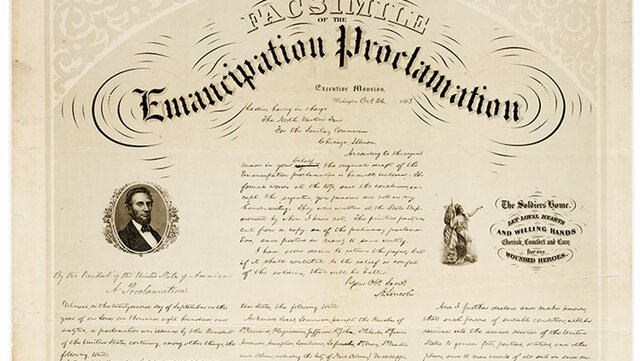 FACSIMILE
OF THE
Emancipation Proclamation
Executive Mansion,
Washington, Oct 26, 1863
Ladies having in charge
The North Western Fair
For the Sanitary Commission
Chicago, Illinois.
According to the request
made in your behalf, the original draft of the
Emancipation proclamation is herewith enclosed. The
formal words at the top, and the conclusion, ex-
cept the signature, you perceive are not in my
hand-writing. They were written at the State Dep-
artment by whom I know not. The printed part was
cut from a copy of the preliminary proclama-
tion, and pasted on merely to save writing.
I have some desire to retain the paper; but
if it shall contribute to the relief or comfort
of the soldiers, that will be better.
Your Obt. Servt.
A. Lincoln
The Soldiers' Home.
LET LOYAL HEARTS
AND WILLING HANDS
Cherish, Comfort and Care
for my
WOUNDED HEROES.
By the President of the United States of America:
A Proclamation.
Whereas, on the twentysecond day of September, in the
year of our Lord one thousand eight hundred and
sixtytwo, a proclamation was issued by the President
of the United States, containing, among other things, the
following, towit:
tem States, the following, towit:
Arkansas, Texas, Louisiana, except the Parishes of
And I further declare and make known,
that such persons of suitable condition, will be
received into the armed service of the United
States to garrison forts, positions, stations, and other
places, and to man vessels of all sorts in said ser-